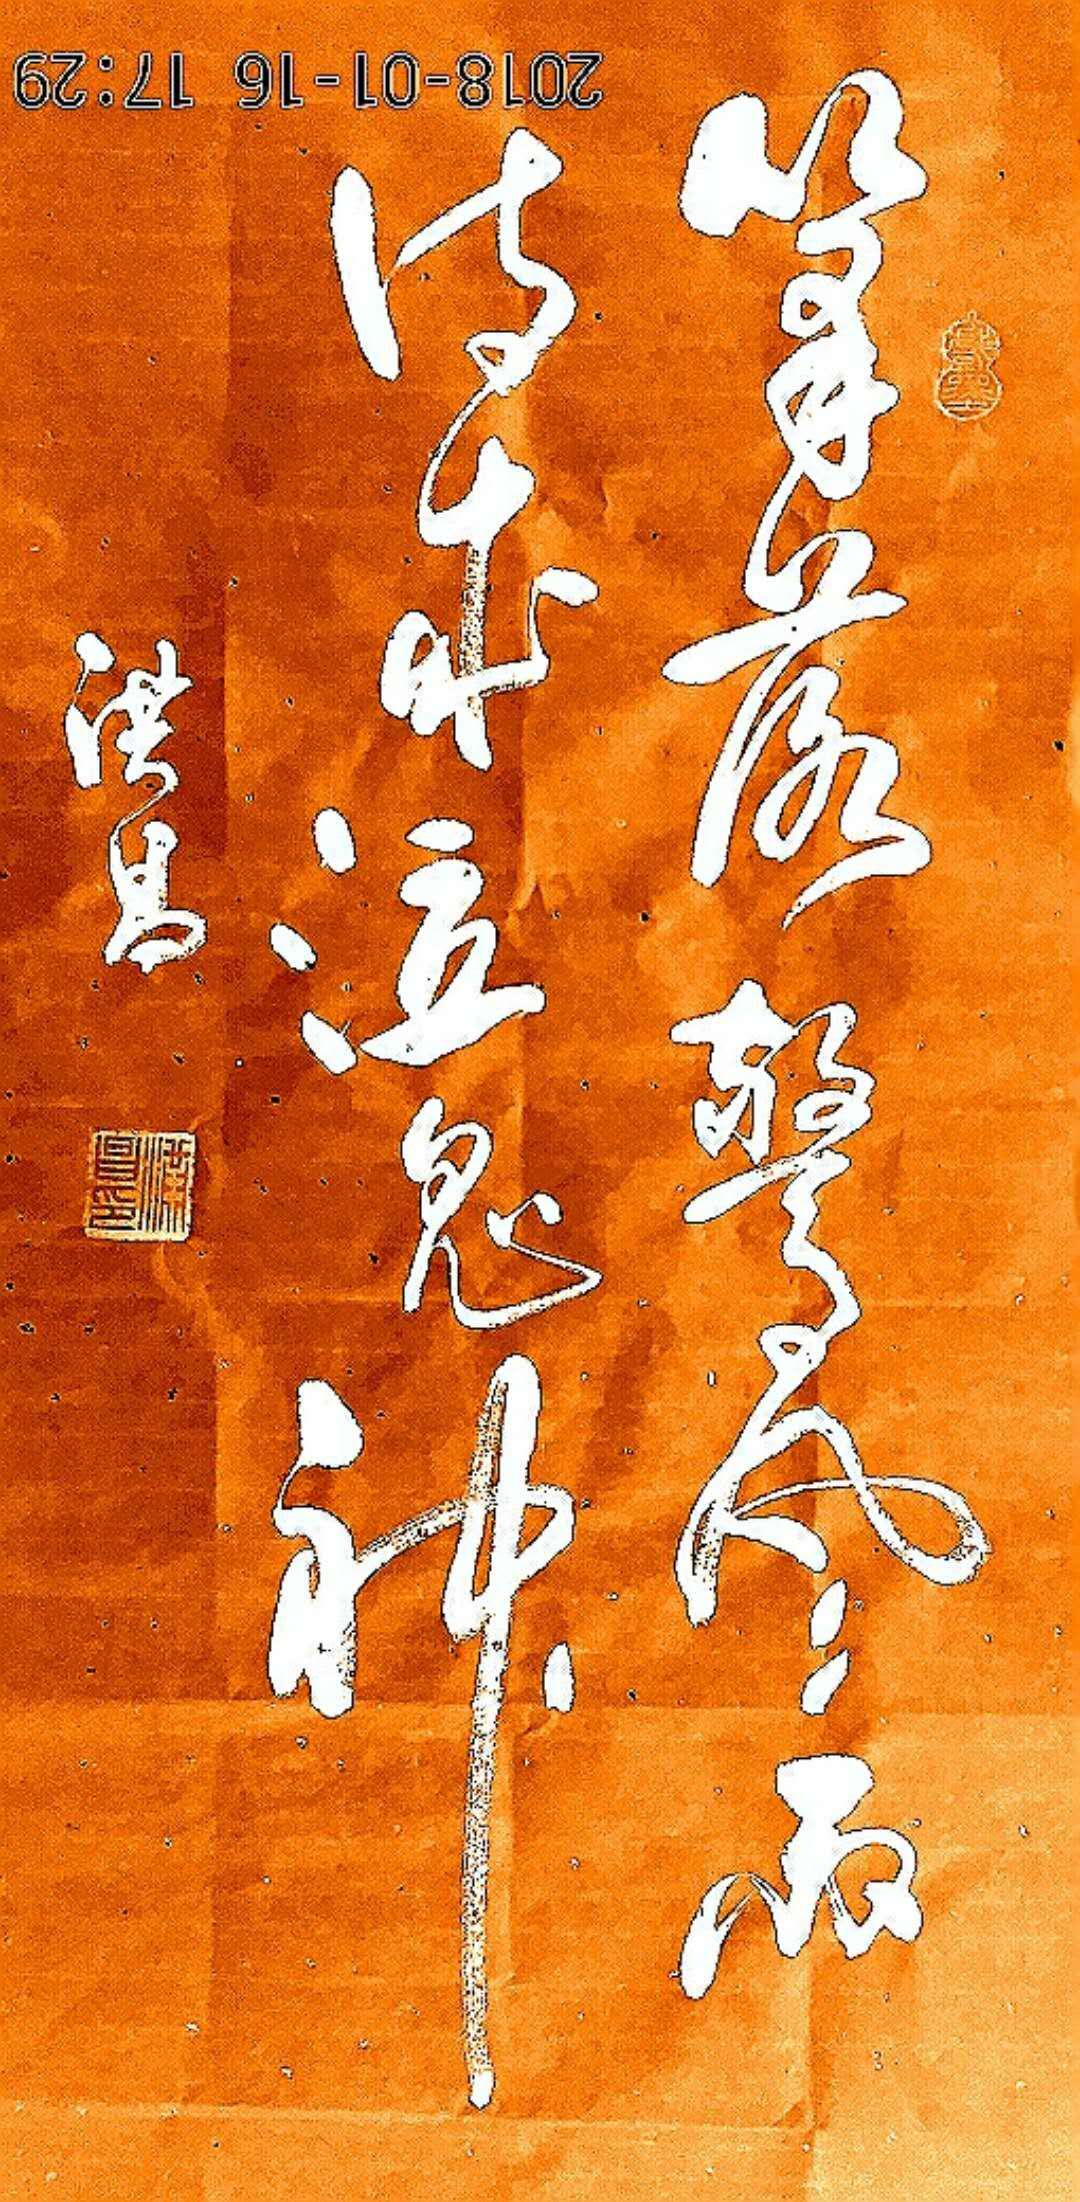 2018-01-16 17:29
筆落驚風雨
詩成泣鬼神
洪昌